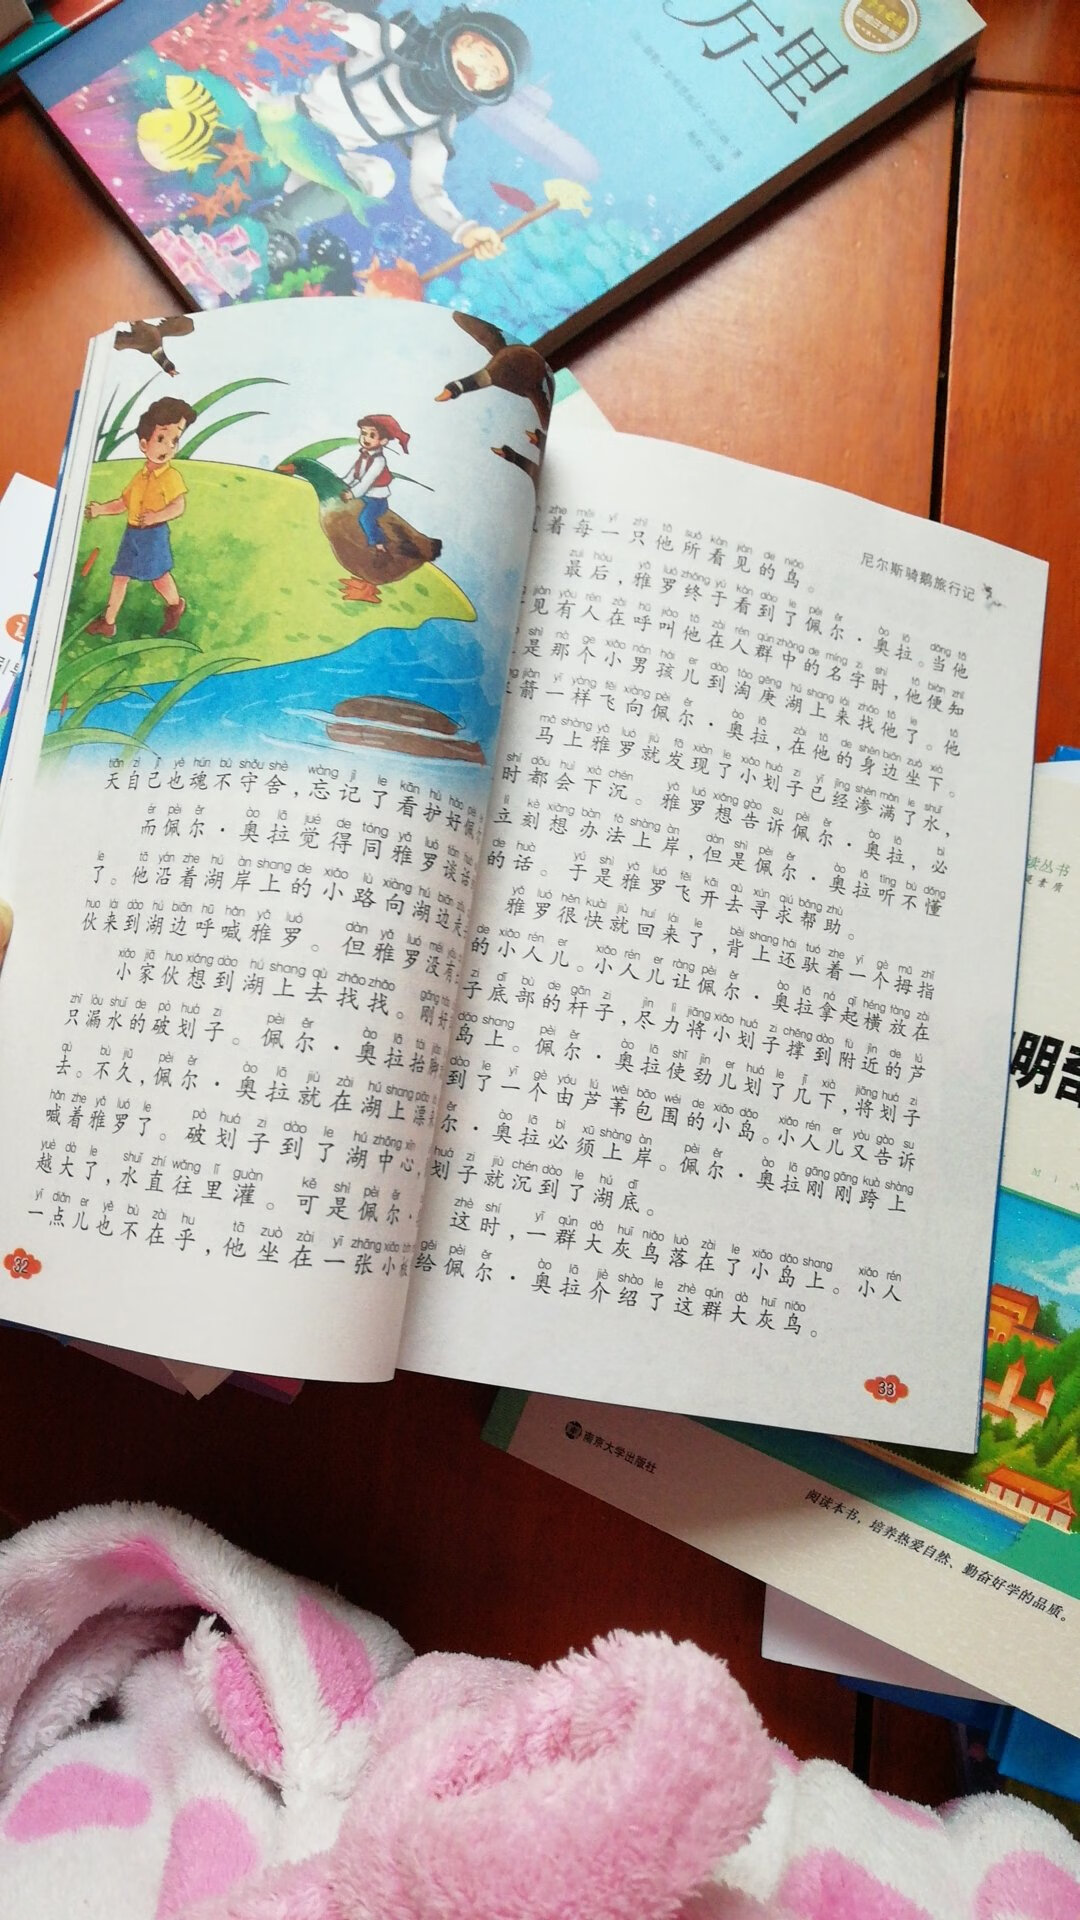 万里
天自己也魂不守舍，忘记了看护好佩
而佩尔·奥拉觉得同雅罗谈话
了。他沿着湖岸上的小路向湖边
伙来到湖边呼喊雅罗。但雅罗没有
小家伙想到湖上去找找。刚好
只漏水的破划子。佩尔·奥拉抬脚
去。不久，佩尔·奥拉就在湖上漂
喊着雅罗了。破划子到了湖中心，
越大了，水直往里灌。可是佩尔·
一点儿也不在乎，他坐在一张小
32
尼尔斯骑鹅旅行记
着每一只他所看见的鸟。
最后，雅罗终于看到了佩尔·奥拉。当他
见有人在呼叫他在人群中的名字时，他便知
是那个小男孩儿到淘庚湖上来找他了。他
箭一样飞向佩尔·奥拉，在他的身边坐下。
马上雅罗就发现了小划子已经渗满了水，
时都会下沉。雅罗想告诉佩尔·奥拉，必
立刻想办法上岸，但是佩尔·奥拉听不懂
的话。于是雅罗飞开去寻求帮助。
雅罗很快就回来了，背上还驮着一个拇指
的小人儿。小人儿让佩尔·奥拉拿起横放在
子底部的杆子，尽力将小划子撑到附近的芦
岛上。佩尔·奥拉使劲儿划了几下，将划子
到了一个由芦苇包围的小岛。小人儿又告诉
尔·奥拉必须上岸。佩尔·奥拉刚刚跨上
划子就沉到了湖底。
这时，一群大灰鸟落在了小岛上。小人
给佩尔·奥拉介绍了这群大灰鸟。
33
读丛书
明
南京大学出版社
阅读本书，培养热爱自然、勤奋好学的品质。